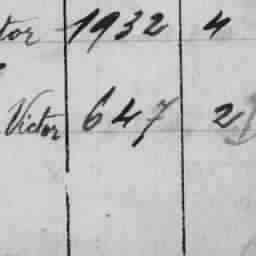 tor 1932 4
Victor 647 2